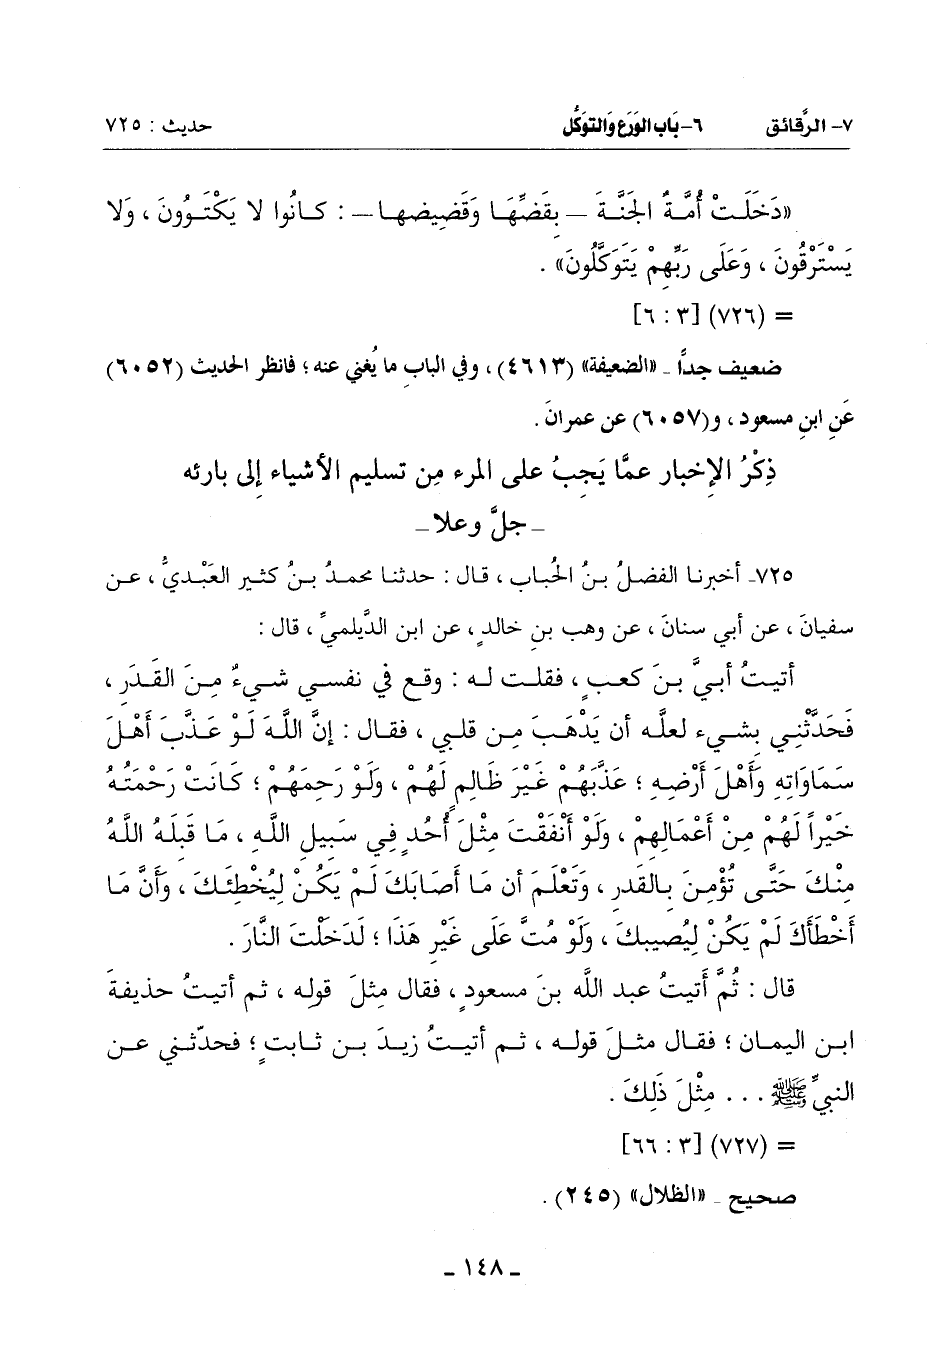 ٧- الرَّقائق ٦- بَاب الوَرَع وَالتوَكُّل حديث : ٧٢٥
«دَخَلَتْ أُمَّةٌ الجَنَّةَ – بِقَضِّهَا وَقَضِيضِهـا – : كـانُوا لا يَكْتَـوُونَ ، وَلا
يَسْتَرْقُونَ ، وَعَلَى رَبِّهِمْ يَتَوَكَّلُونَ» .
= (٧٢٦) [٣ : ٦]
ضعيف جداً ـ «الضعيفة» (٤٦١٣) ، وفي الباب ما يُغني عنه ؛ فانظر الحديث (٦٠٥٢)
عَنِ ابنِ مسعود ، و(٦٠٥٧) عن عمرانَ .
ذِكْرُ الإخبار عمَّا يَجِبُ على المرء مِن تسليم الأشياء إلى بارئه
ـ جلَّ وعلا ـ
٧٢٥ـ أخبرنا الفضلُ بنُ الحُباب ، قال : حدثنا محمدُ بنُ كثير العَبْديُّ ، عـن
سفيانَ ، عن أبي سنانَ ، عن وهب بنِ خالدٍ ، عن ابن الدَّيلميِّ ، قال :
أتيتُ أبيَّ بنَ كعبٍ ، فقلت له : وقع في نفسي شيءٌ مِنَ القَدَرِ ،
فَحَدِّثْنِي بشيء لعلَّه أن يَذْهَبَ مِن قلبي ، فقال : إنَّ اللَّهَ لَوْ عَذَّبَ أَهْلَ
سَمَاوَاتِهِ وَأَهْلَ أَرْضِهِ ؛ عَذَّبَهُمْ غَيْرَ ظَالِمٍ لَهُمْ ، ولَوْ رَحِمَهُمْ ؛ كَانَتْ رَحْمَتُهُ
خَيْراً لَهُمْ مِنْ أَعْمَالِهِمْ ، وَلَوْ أَنْفَقْتَ مِثْلَ أُحُدٍ فِي سَبِيلِ اللَّهِ ، مَا قَبِلَهُ اللَّهُ
مِنْكَ حَتَّى تُؤْمِنَ بالقَدر ، وَتَعْلَمَ أن مَا أَصَابَكَ لَمْ يَكُنْ لِيُخْطِئَكَ ، وَأَنَّ مَا
أَخْطَأَكَ لَمْ يَكُنْ لِيُصِيبكَ ، ولَوْ مُتَّ عَلَى غَيْرِ هَذَا ؛ لَدَخَلْتَ النَّارَ .
قال : ثُمَّ أَتَيتُ عبد اللَّه بنَ مسعودٍ ، فقال مِثلَ قوله ، ثم أتيتُ حذيفةَ
ابن اليمان ؛ فقال مثلَ قوله ، ثم أتيتُ زيدَ بن ثابتٍ ؛ فحدّثني عن
النبيِّ ﷺ . . . مِثْلَ ذَلِكَ .
= (٧٢٧) [٣ : ٦٦]
صحيح ـ «الظلال» (٢٤٥) .
ـ ١٤٨ ـ